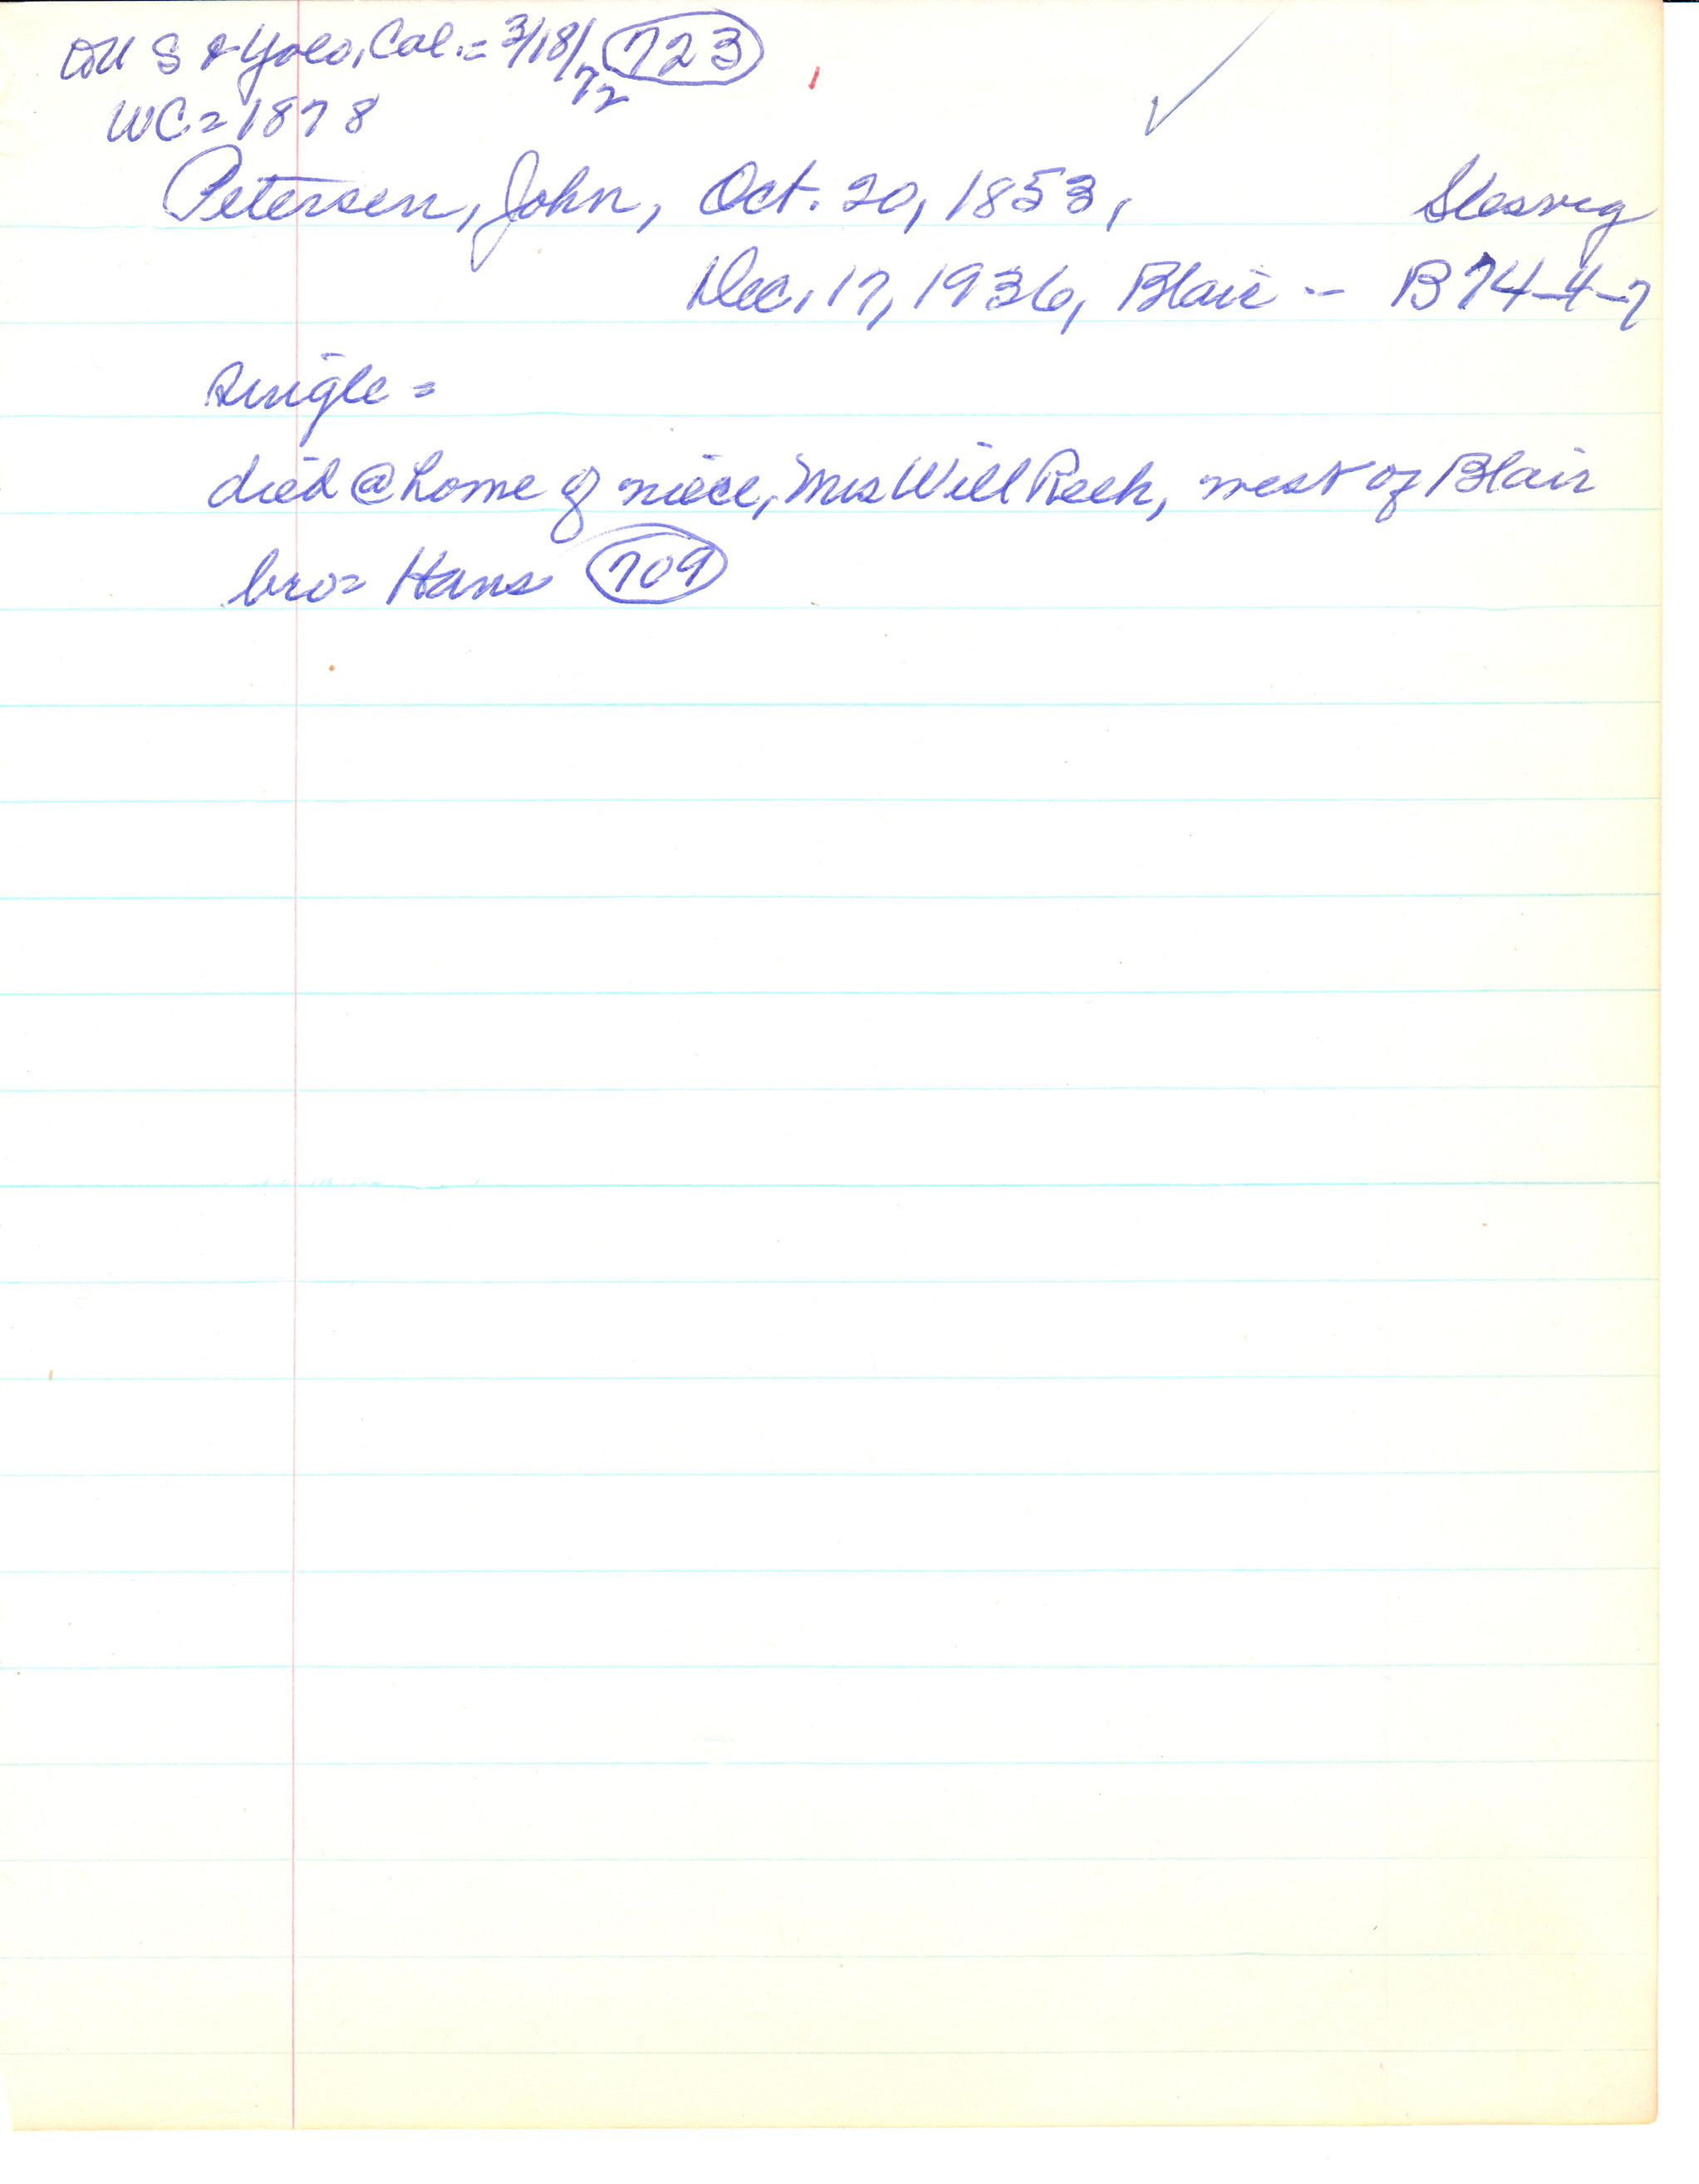 U S & Yolo, Cal. = 3/18/72 723
WC = 1878
Petersen, John, Oct. 20, 1853, Slesvig
Dec. 17, 1936, Blair -- B 74-4-7
single =
died @ home of niece, Mrs Will Reeh, west of Blair
bro = Hans 709